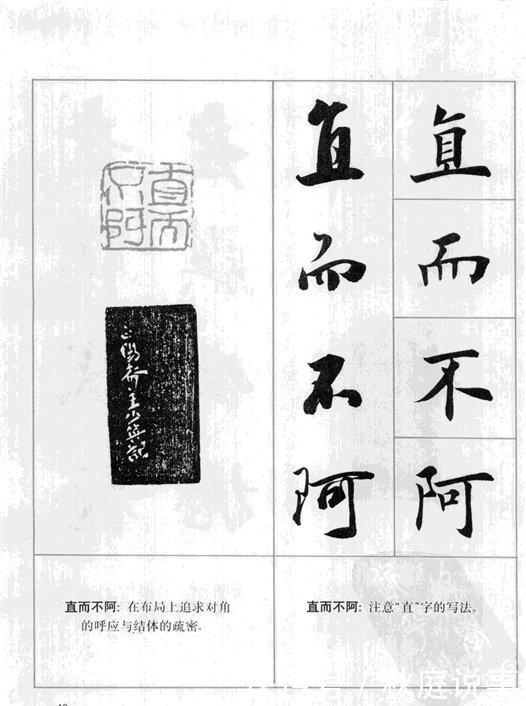 直而不阿
直而不阿
直而不阿
直而不阿：在布局上追求对角
的呼应与结体的疏密。
直而不阿：注意“直”字的写法。
秋庭说事